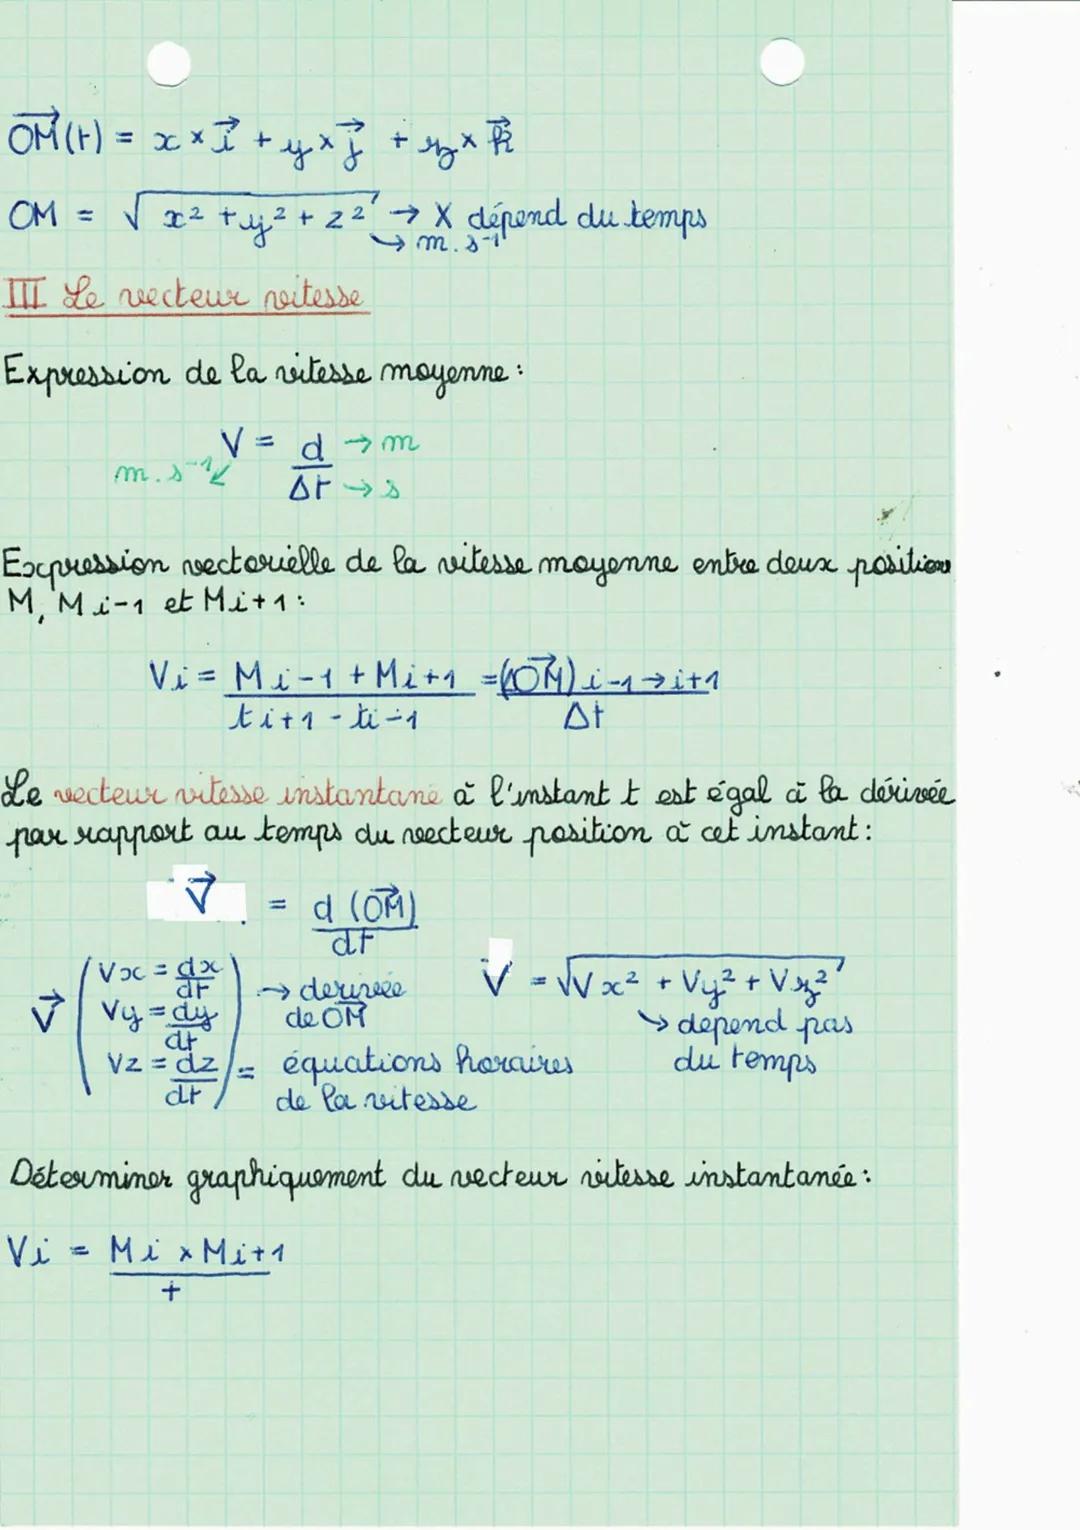 OM(t) = x × i + y × j + z × k
OM = √x² + y² + z² → X dépend du temps
→ m.s⁻¹
III Le vecteur vitesse
Expression de la vitesse moyenne :
V = d → m
m.s⁻¹ Δt → s
Expression vectorielle de la vitesse moyenne entre deux positions
M, M i-1 et M i+1 :
Vi = M i-1 + M i+1 = (OM) i-1 → i+1
t i+1 - t i-1 Δt
Le vecteur vitesse instantané à l'instant t est égal à la dérivée
par rapport au temps du vecteur position à cet instant :
V = d (OM)
dt
V ( Vx = dx/dt ) → derivée
Vy = dy/dt de OM
Vz = dz/dt = équations horaires
de la vitesse
V = √Vx² + Vy² + Vz²
→ depend pas
du temps
Déterminer graphiquement du vecteur vitesse instantanée :
Vi = M i × M i+1
t